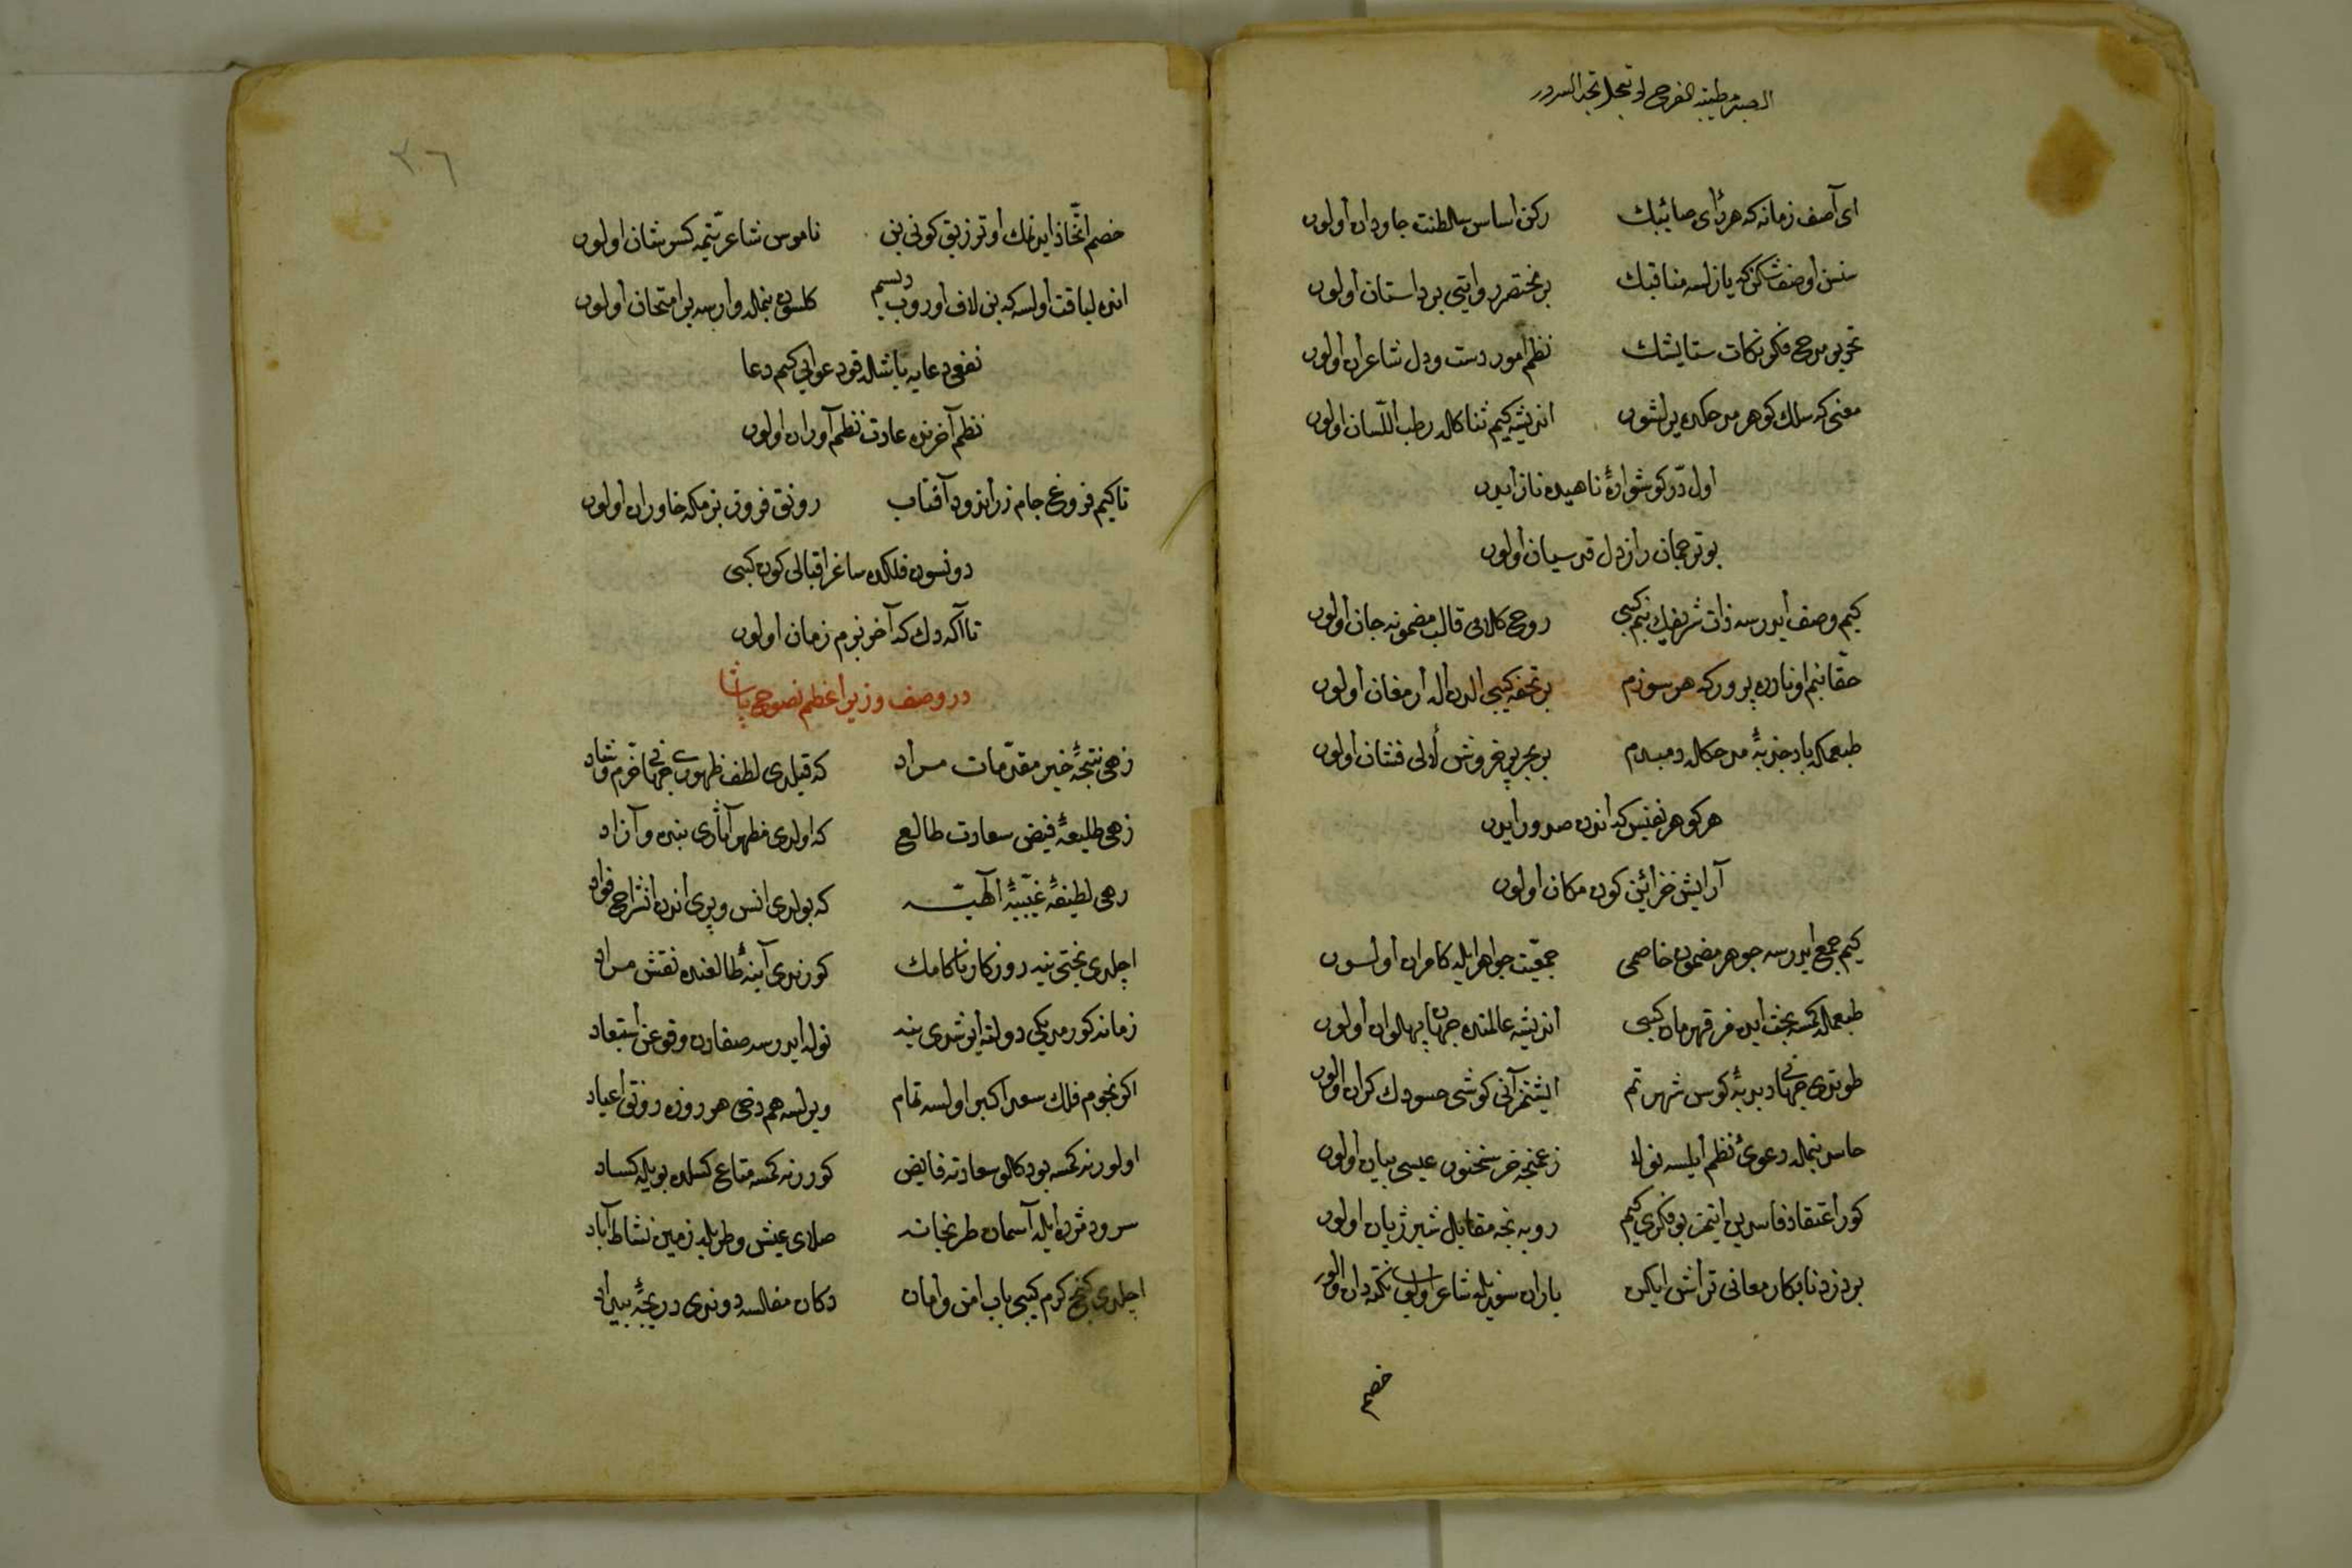 ای آصف زمانه که هر رأی صائبك ركن اساس سلطنت جاودان اولور
سنسن او صف‌شکن که یازلسه مناقبك بر مختصر روایتی بر داستان اولور
تحریر مدح و فکر نکات ستایشك نظم امور دست و دل شاعران اولور
معنی که سلك گوهر مدحکده یر لشور اندیشه کیم ثناکله رطب اللسان اولور
اول در گوشوارهٔ ناهیده ناز ایدر
بو ترجمان راز دل قدسیان اولور
کیم وصف ایدرسه ذات شریفك بنم کبی روح کلامی قالب مضمونه جان اولور
حقا بنم او نادره پرور که هر سوزم بر تحفه کبی الدن اله ارمغان اولور
طبعمله یاد جذبهٔ مدحکله دمبدم بر بحر پر خروش لآلی فشان اولور
هر گوهر نفیس که اندن صدور ایدر
آرایش خزائن کون مکان اولور
کیم جمع ایدرسه جوهر مضمون خاصمی جمعیت جواهر ایله کامران اولسون
طبعمله کمسه بحث ایده‌مز قهرمان کبی اندیشه عالمنده جهان پهلوان اولور
طوتدی جهانی دبدبهٔ کوس شهرتم ایشتمز آنی گوشی حسودك گران اولور
حاسد بنمله دعوئ نظم ایلسه نوله زعمنجه خر سخنور عیسی بیان اولور
کور اعتقاد فاسدین ایتمز بو فکری کیم روبه نجه مقابل شیر ژیان اولور
بر دزد نابکار معانی تراش ایکن یاران سوزیله شاعر اولوب نکته‌دان اولور
خصم
خصم اتخاذ ایدنمك اوتر زیق کونی بن ناموس شاعر یتمه کسر شان اولور
انده لیاقت اولسه که بن لاف اوروب دیسم کلسون بنمله وار سه بر امتحان اولور
نفعی دعایه باشله قو دعوایی کیم دعا
نظم آخرنده عادت نظم آوران اولور
تا کیم فروغ جام زر اندود آفتاب رونق فروز بزمکه خاوران اولور
دونسون فلکده ساغر اقبالی کون کبی
تا آکه دك که آخر بزم زمان اولور
در وصف وزیر اعظم نصوح پاشا
زهی نتیجهٔ خیر مقدمات مراد که قیلدی لطف ظهوری جهانی خرم و شاد
زهی طلیعهٔ فیض سعادت طالع که اولدی مظهر آثاری بنده و آزاد
زهی لطیفهٔ غیبیهٔ الهیه که بولدی انس و پری اندن انشراح فؤاد
اچلدی بختی ینه روزکار ناکامك کورندی آینهٔ طالعنده نقش مراد
زمانه کورمدیکی دولته ایرشدی ینه نوله ایدرسه صفادن وقوعن استبعاد
اکر نجوم فلك سعد اکبر اولسه تمام ویرلسه هم دخی هر روزه رونق اعیاد
اولور نه کمسه بو دکلو سعادته فایض کورر نه کمسه متاع کسلده بویله کساد
سرود مژده ایله آسمان طربخانه صلای عیش و طربله زمین نشاط آباد
اچلدی کنج کرم کبی باب امن و امان دکان مفلسه دوندی دریچهٔ بیداد